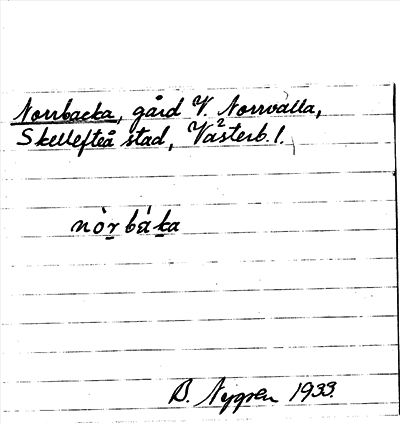 Norrbacka, gård V. Norrvalla,
Skellefteå stad, Västerb. l.
nòr̲bák̲a
B. Nygren 1933.